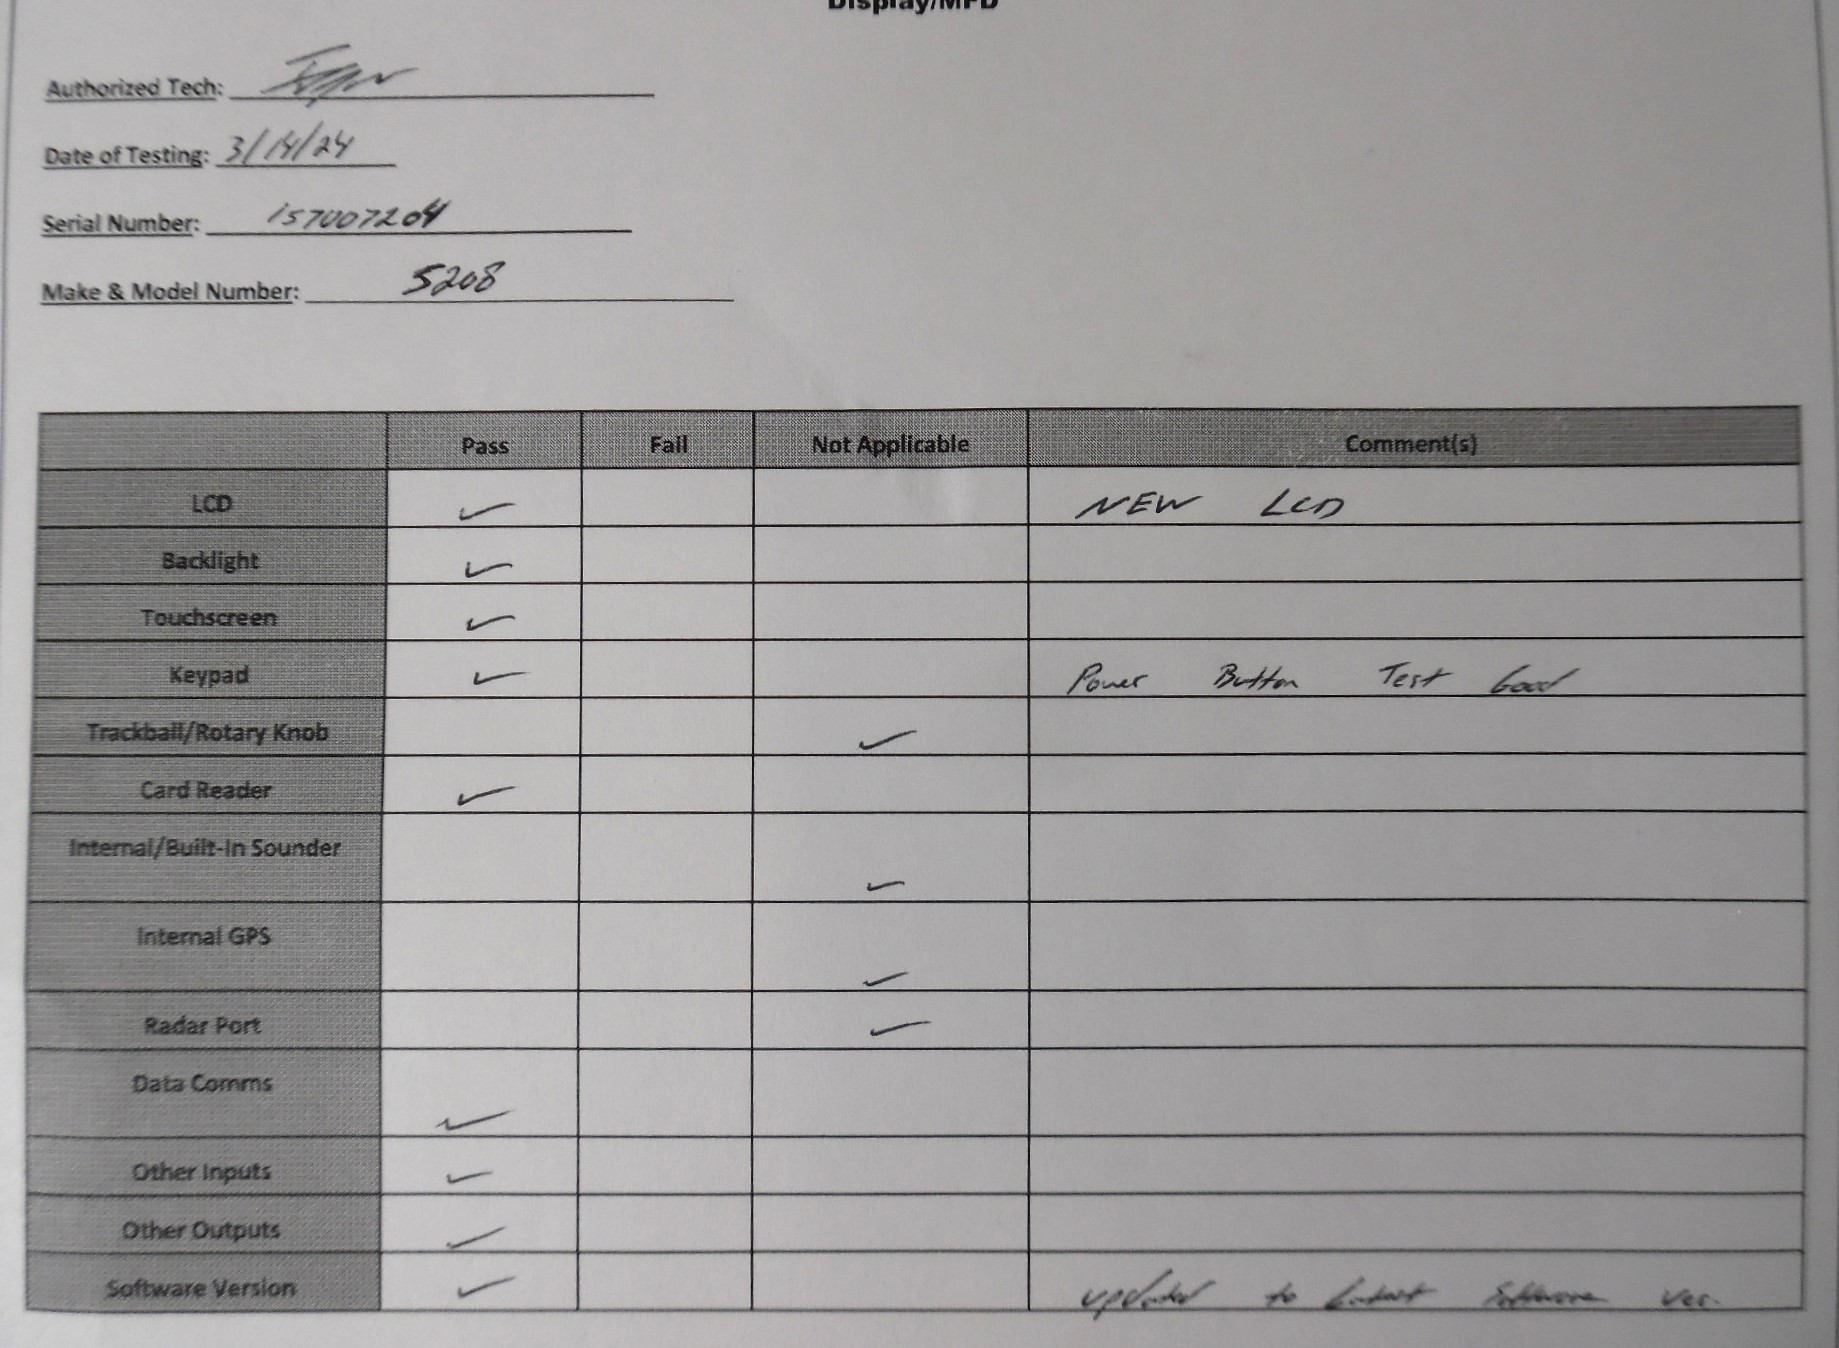 Display/MFD
Authorized Tech:
Date of Testing: 3/14/24
Serial Number: 157007204
Make & Model Number: 5208
Pass Fail Not Applicable Comment(s)
LCD ✓ NEW LCD
Backlight ✓
Touchscreen ✓
Keypad ✓ Power Button Test Good
Trackball/Rotary Knob ✓
Card Reader ✓
Internal/Built-In Sounder ✓
Internal GPS ✓
Radar Port ✓
Data Comms ✓
Other Inputs ✓
Other Outputs ✓
Software Version ✓ updated to Latest Software ver.